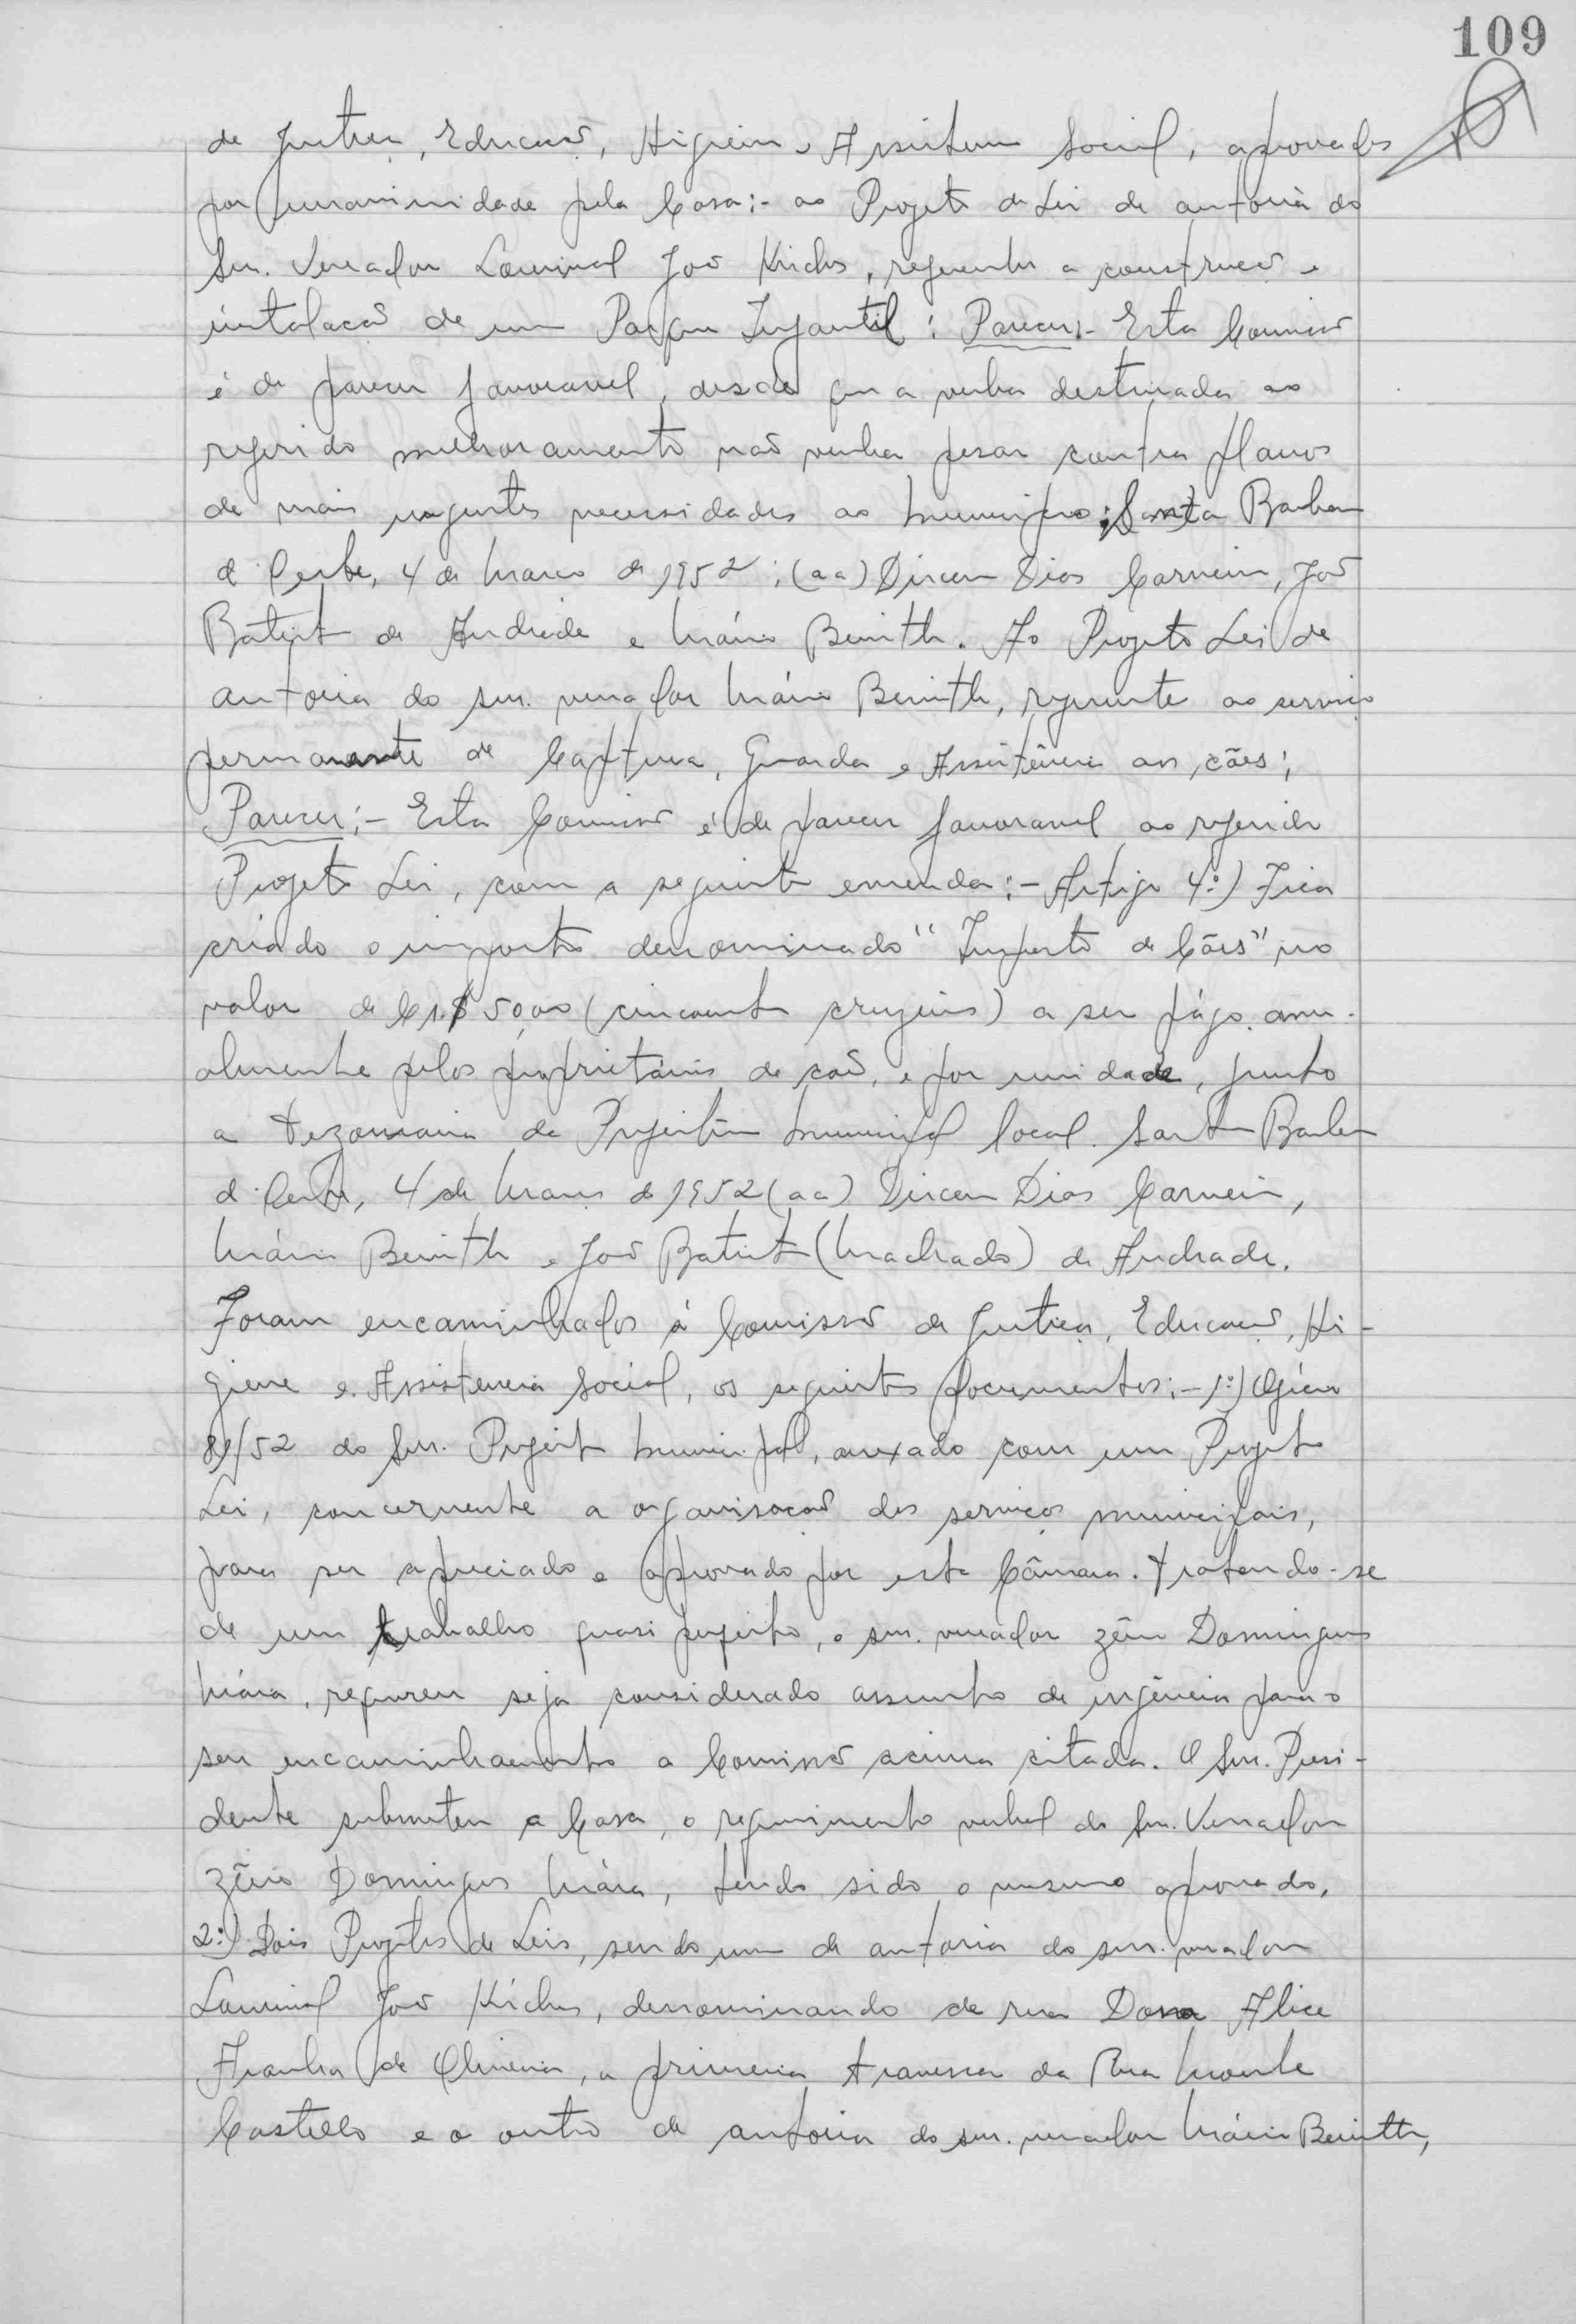 109
de Justiça, Educação, Higiene e Assistencia Social, aprovados
por unanimidade pela Casa:- ao Projeto de Lei de autoria do
Snr. Vereador Lourival João Kiehs, referente a construção e
instalação de um Parque Infantil: Parecer:- Esta Comissão
é de parecer favoravel, desde que a verba destinada ao
referido melhoramento não venha pesar contra planos
de mais urgentes necessidades ao municipio; Santa Barbara
d'Oeste, 4 de março de 1952; (aa) Dirceu Dias Carneiro, João
Batista de Andrade e Mário Beinith. Ao Projeto Lei de
autoria do snr. vereador Mário Beinith, referente ao serviço
permanente de Captura, Guarda e Assistência aos cães;
Parecer:- Esta Comissão é de parecer favoravel ao referido
Projeto Lei, com a seguinte emenda:- Artigo 4º) Fica
criado o imposto denominado "Imposto de Cães" no
valor de Cr.$ 50,00 (cincoenta cruzeiros) a ser págo anu-
almente pelos proprietários de cão, e por unidade, junto
a tezouraria da Prefeitura municipal local. Santa Barbara
d'Oeste, 4 de março de 1952 (aa) Dirceu Dias Carneiro,
Mário Beinith e João Batista (Machado) de Andrade.
Foram encaminhados á Comissão de Justiça, Educação, Hi-
giene e Assistencia Social, os seguintes documentos:- 1º) Oficio
/52 do Snr. Prefeito Municipal, anexado com um Projeto
Lei, concernente a organisação dos serviços municipais,
para ser apreciado e aprovado por esta Câmara. Tratando-se
de um trabalho quasi perfeito, o snr. vereador Zênio Domingues
Máia, requereu seja considerado assunto de urgência para o
seu encaminhamento a Comissão acima citada. O Snr. Presi-
dente submeteu a Casa, o requerimento verbal do Snr. Vereador
Zênio Domingues Máia, tendo sido o mesmo aprovado.
2º) Dois Projetos de Leis, sendo um de autoria do snr. vereador
Lourival João Kiehs, denominando de rua Dona Alice
Aranha de Oliveira, a primeira travessa da Rua Monte
Castello e o outro de autoria do snr. vereador Mário Beinith,